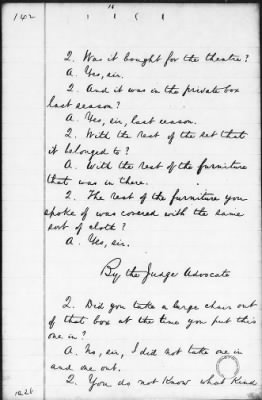 142
16
Q. Was it bought for the theatre?
A. Yes, sir.
Q. And it was in the private box
last season?
A. Yes, sir, last season.
Q. With the rest of the set that
it belonged to?
A. With the rest of the furniture
that was in there.
Q. The rest of the furniture you
spoke of was covered with the same
sort of cloth?
A. Yes, sir.
By the Judge Advocate
Q. Did you take a large chair out
of that box at the time you put this
one in?
A. No, sir, I did not take one in
and one out.
Q. You do not know what kind